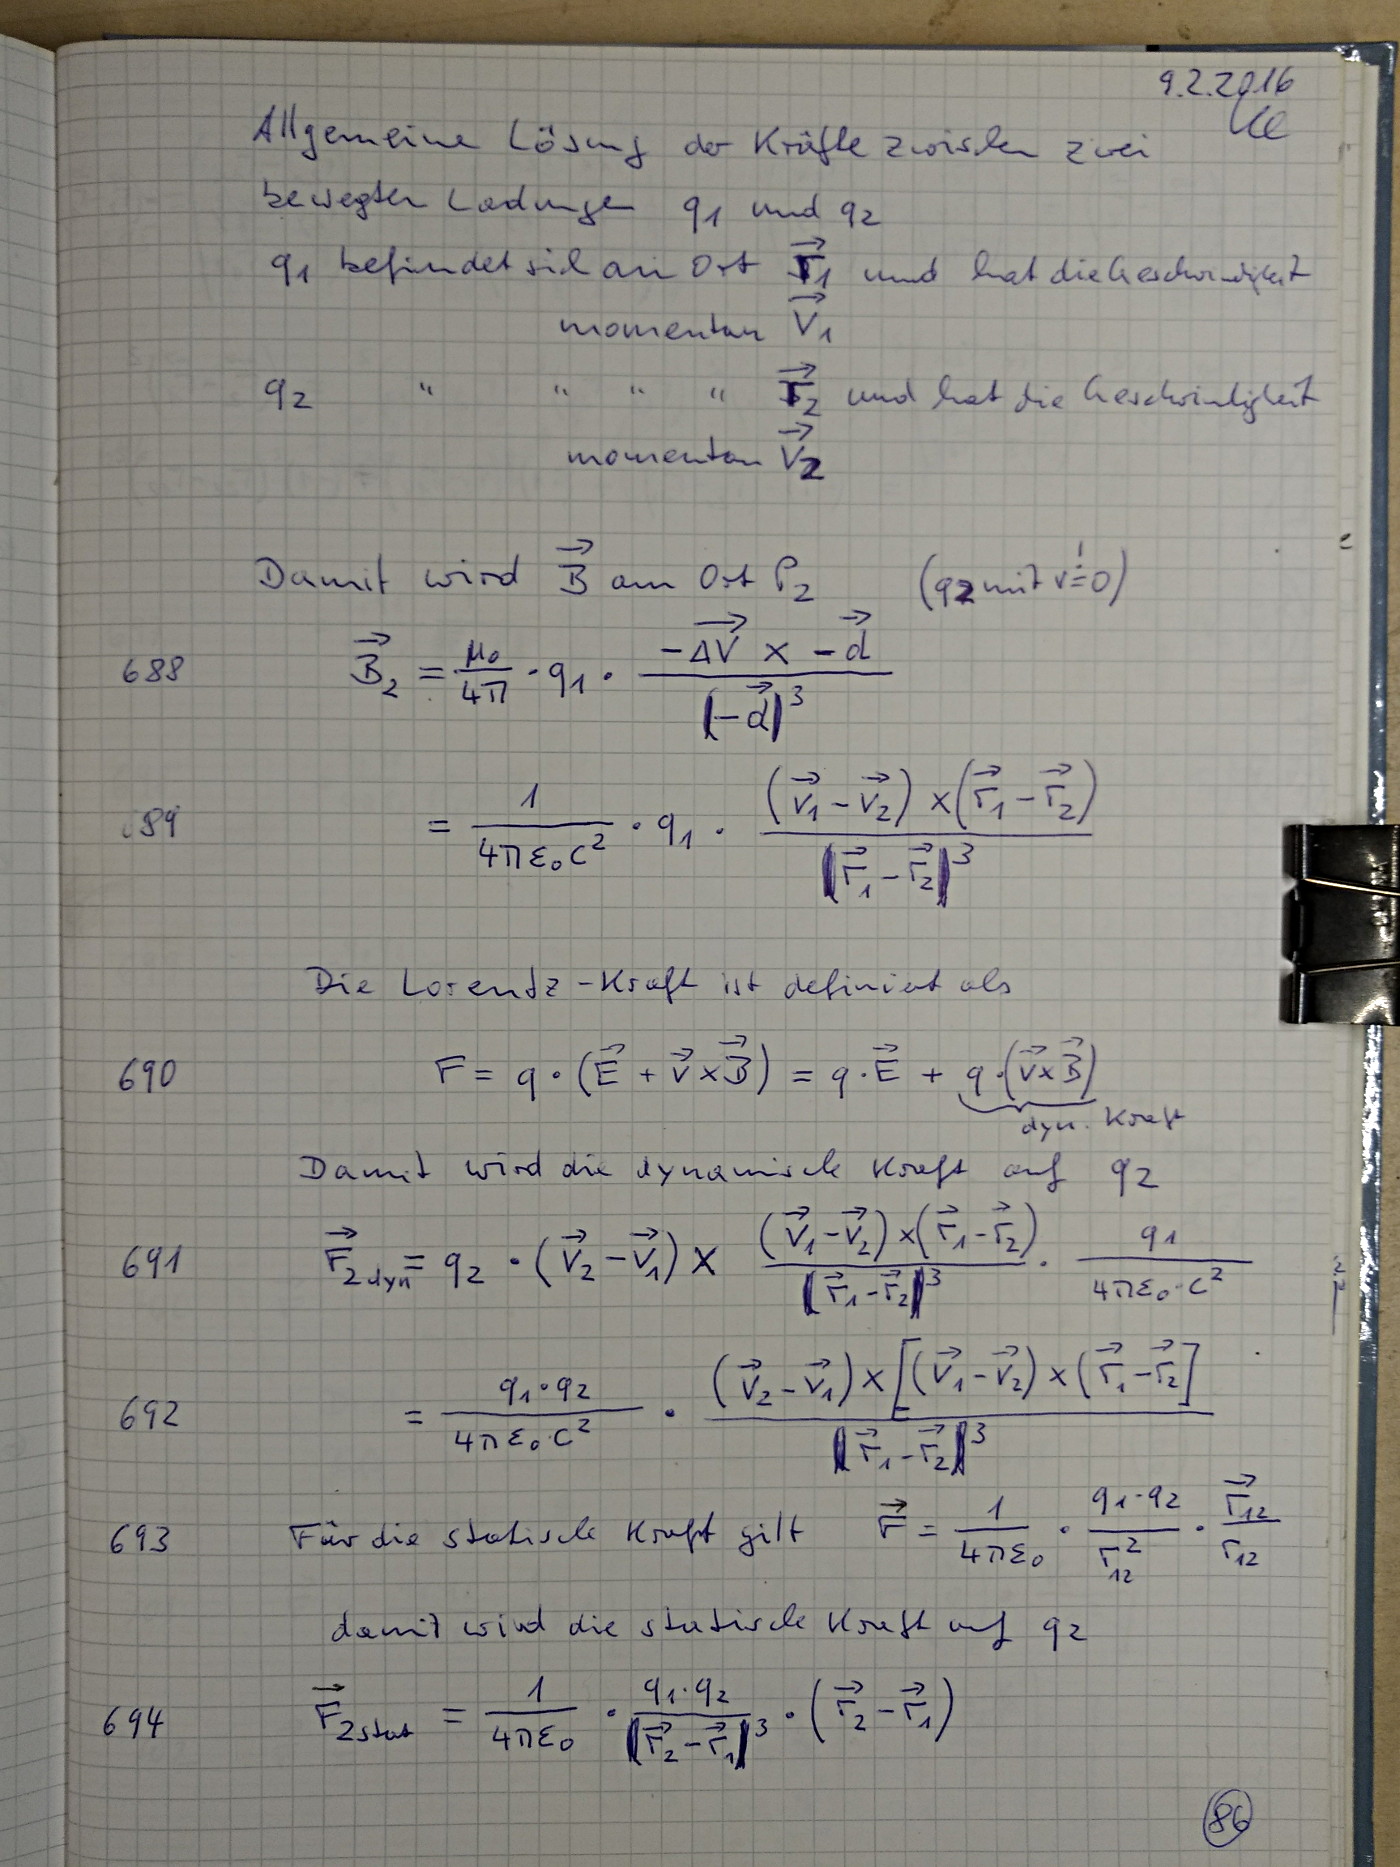 9.2.2016
Allgemeine Lösung der Kräfte zwischen zwei
bewegten Ladungen q₁ und q₂
q₁ befindet sich am Ort r⃗₁ und hat die Geschwindigkeit
momentan v⃗₁
q₂ " " " " r⃗₂ und hat die Geschwindigkeit
momentan v⃗₂
Damit wird B⃗ am Ort P₂ (q₂ mit v=0)
688 B⃗₂ = μ₀/4π · q₁ · (−Δv⃗ × −d⃗)/|−d⃗|³
689 = 1/(4πε₀c²) · q₁ · (v⃗₁ − v⃗₂) × (r⃗₁ − r⃗₂)/|r⃗₁ − r⃗₂|³
Die Lorentz-Kraft ist definiert als
690 F = q · (E⃗ + v⃗ × B⃗) = q · E⃗ + q · (v⃗ × B⃗)
dyn. Kraft
Damit wird die dynamische Kraft auf q₂
691 F⃗₂ dyn = q₂ · (v⃗₂ − v⃗₁) × (v⃗₁ − v⃗₂) × (r⃗₁ − r⃗₂)/|r⃗₁ − r⃗₂|³ · q₁/(4πε₀ · c²)
692 = q₁ · q₂/(4πε₀ · c²) · (v⃗₂ − v⃗₁) × [(v⃗₁ − v⃗₂) × (r⃗₁ − r⃗₂]/|r⃗₁ − r⃗₂|³
693 Für die statische Kraft gilt F⃗ = 1/(4πε₀) · q₁ · q₂/r₁₂² · r⃗₁₂/r₁₂
damit wird die statische Kraft auf q₂
694 F⃗₂ stat = 1/(4πε₀) · q₁ · q₂/|r⃗₂ − r⃗₁|³ · (r⃗₂ − r⃗₁)
86